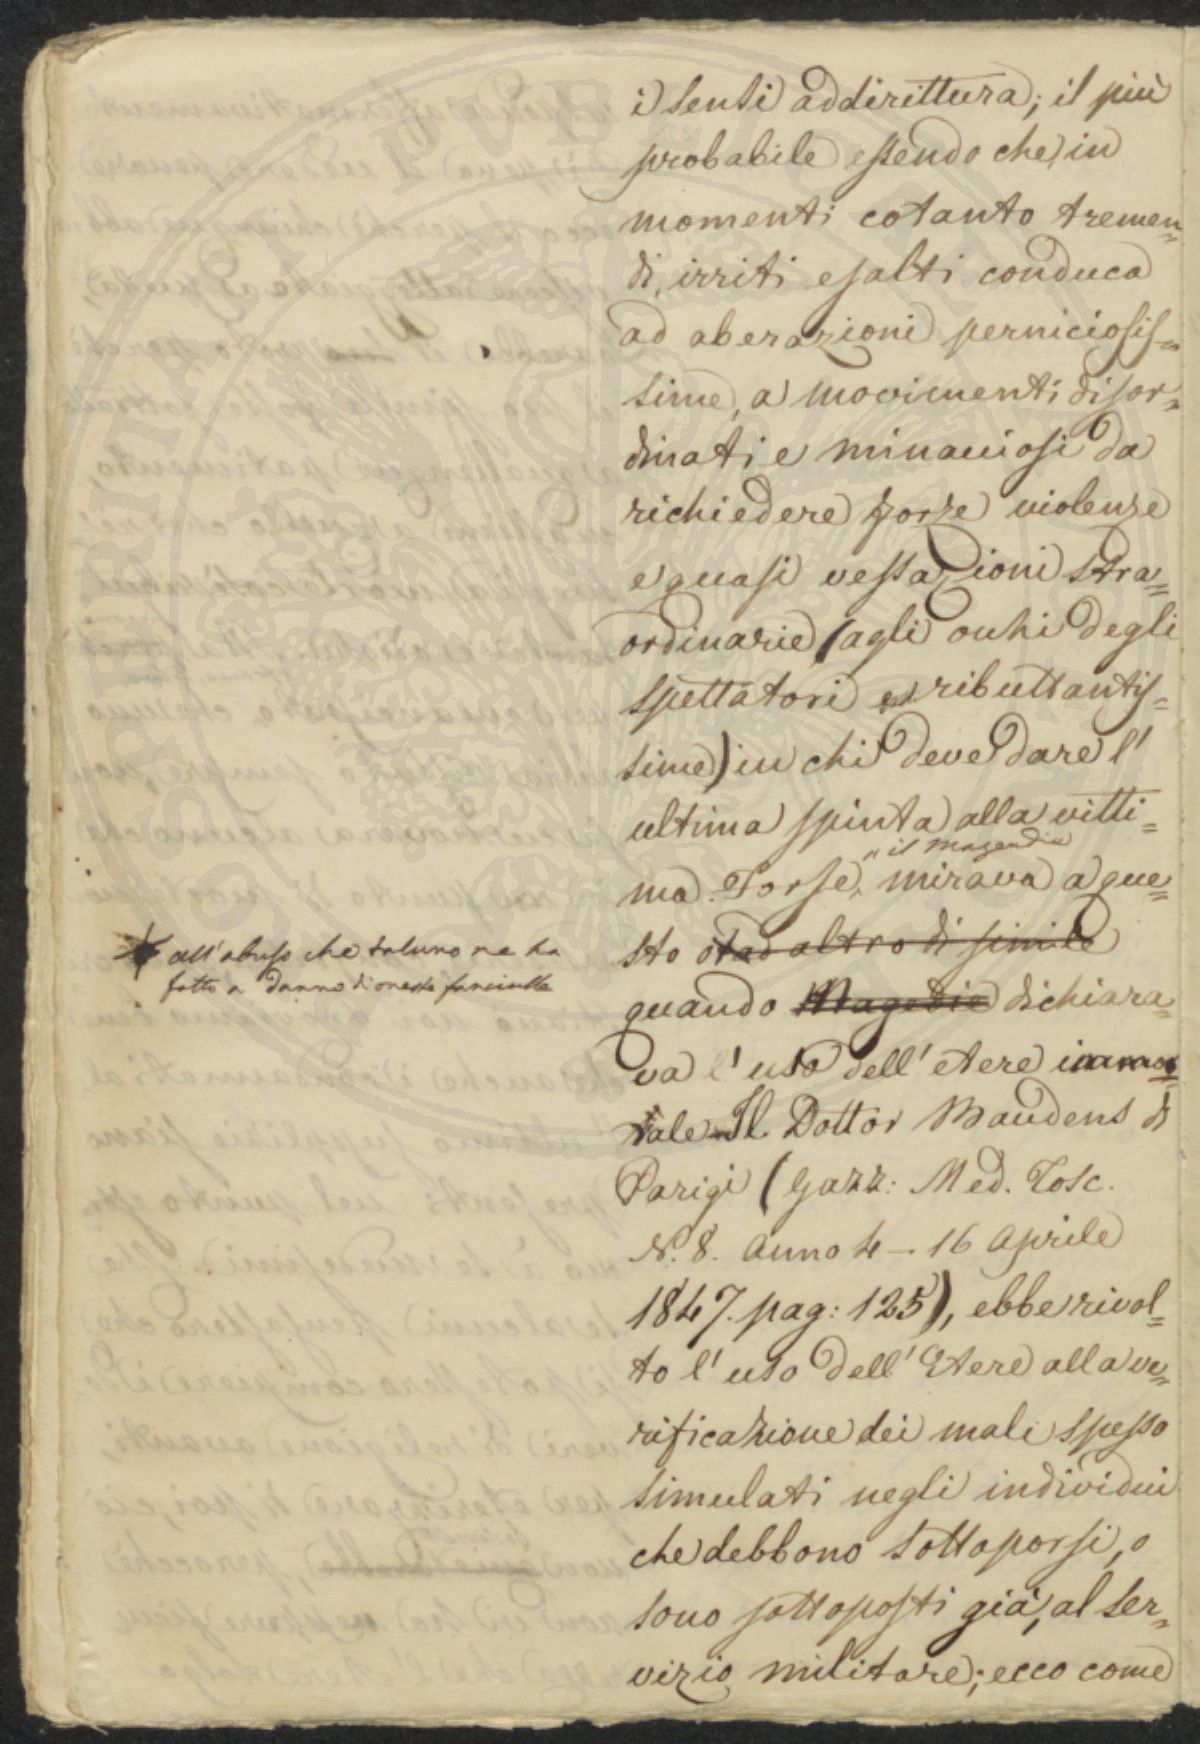 i sensi addirittura; il più
probabile essendo che, in
momenti cotanto tremen=
di, irriti esalti conduca
ad aberazioni perniciosis=
sime, a movimenti disor=
dinati e minacciosi da
richiedere forse violenze
e quasi vessazioni stra=
ordinarie (agli occhi degli
spettatori ributtantis=
sime) in chi deve dare l'
ultima spinta alla vitti=
ma. Forse, il Magendie mirava a que=
sto o ad altro di simile
quando Magedie dichiara=
va l'uso dell'etere immo=
rale. Il Dottor Baudens di
Parigi (Gazz: Med. Tosc.
N. 8. Anno 4 – 16 Aprile
1847. pag: 125), ebbe rivol=
to l'uso dell'Etere alla ve=
rificazione dei mali spesso
simulati negli individui
che debbono sottoporsi, o
sono sottoposti già, al ser=
vizio militare; ecco come
all'abuso che taluno ne ha
fatto a danno di oneste fanciulle